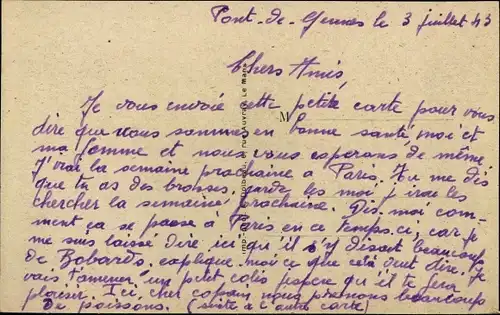 Pont-de-Gennes le 3 juillet 43
Chers Amis,
Je vous envoie cette petite carte pour vous
dire que nous sommes en bonne santé, moi et
ma femme et nous vous esperons de même
J'irai la semaine prochaine à Paris. Tu me dis
que tu as des brosses, garde les moi j'irai les
chercher la semaine prochaine. Dis moi com-
ment ça se passe à Paris en ce temps ci, car je
me suis laissé dire ici qu'il s'y disait beaucoup
de Bobards, explique moi ce que cela veut dire. Je
vais t'amener un petit colis j'espere qu'il te fera
plaisir. Ici, cher copain nous prenons beaucoup
de poissons. (suite à l'autre carte)
M
rue Auvray, Le Mans